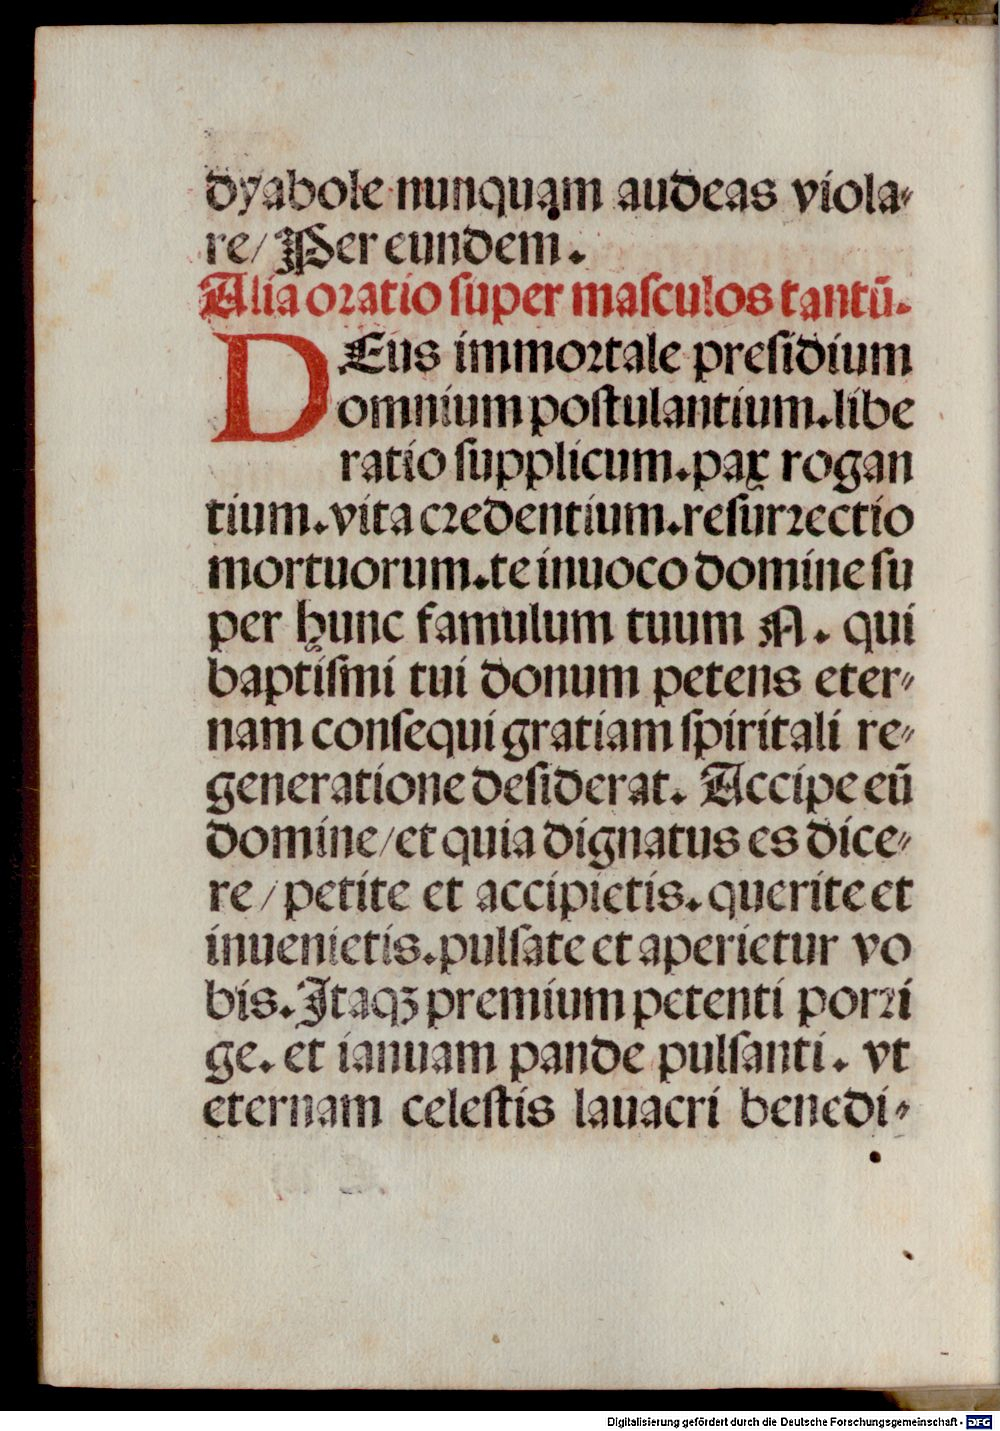 dyabole nunquam audeas viola-
re/ Per eundem.
Alia oratio super masculos tantū.
DEus immortale presidium
omnium postulantium.libe
ratio supplicum.pax rogan
tium.vita credentium.resurrectio
mortuorum.te inuoco domine su
per hunc famulum tuum N. qui
baptismi tui donum petens eter-
nam consequi gratiam spiritali re-
generatione desiderat. Accipe eū
domine/et quia dignatus es dice-
re/ petite et accipietis.querite et
inuenietis.pulsate et aperietur vo
bis.Itaqꝫ premium petenti porri
ge. et ianuam pande pulsanti. vt
eternam celestis lauacri benedi-
Digitalisierung gefördert durch die Deutsche Forschungsgemeinschaft - DFG